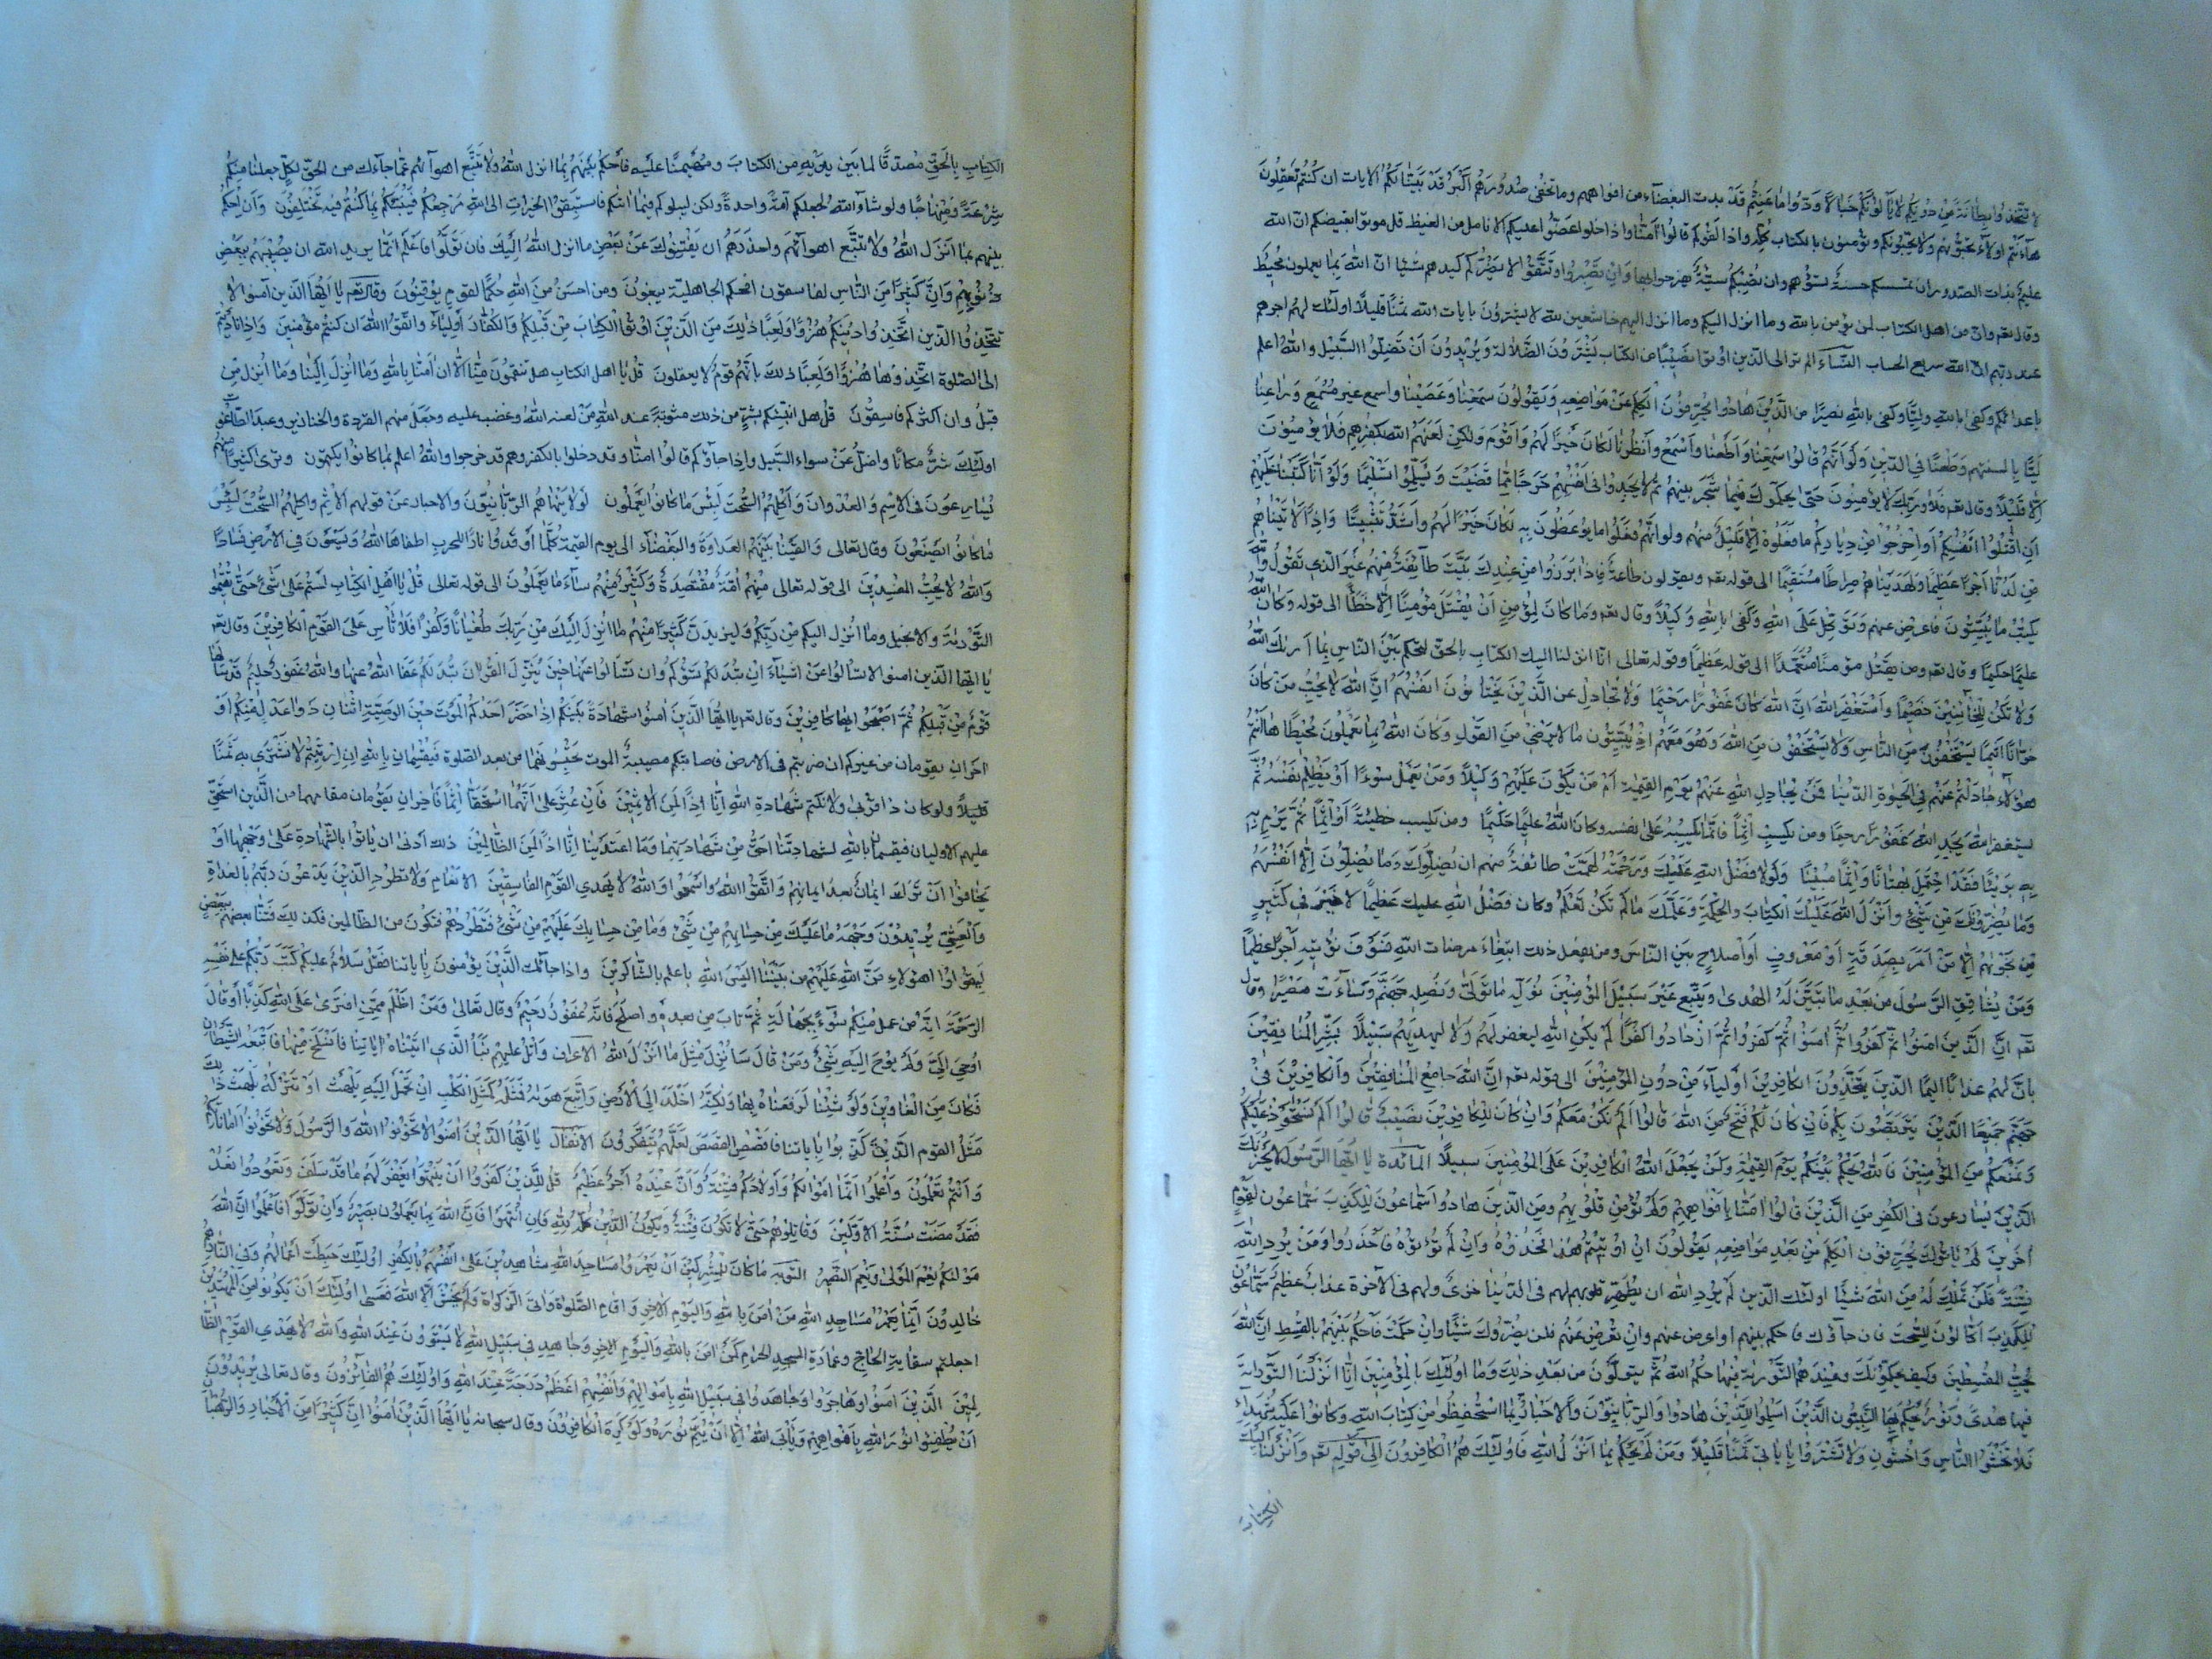 لا تتخذوا بطانة من دونكم لا يألونكم خبالا ودوا ما عنتم قد بدت البغضاء من افواههم وما تخفى صدورهم اكبر قد بينا لكم الايات ان كنتم تعقلون
هاانتم اولاء تحبونهم ولا يحبونكم وتؤمنون بالكتاب كله واذا لقوكم قالوا امنا واذا خلوا عضوا عليكم الانامل من الغيظ قل موتوا بغيضكم ان الله
عليم بذات الصدور ان تمسسكم حسنة تسؤهم وان تصبكم سيئة يفرحوا بها وان تصبروا وتتقوا لا يضركم كيدهم شيئا ان الله بما يعملون محيط
وقال تعم وان من اهل الكتاب لمن يؤمن بالله وما انزل اليكم وما انزل اليهم خاشعين لله لا يشترون بايات الله ثمنا قليلا اولئك لهم اجرهم
عند ربهم ان الله سريع الحساب النساء الم تر الى الذين اوتوا نصيبا من الكتاب يشترون الضلالة ويريدون ان تضلوا السبيل والله اعلم
باعدائكم وكفى بالله وليا وكفى بالله نصيرا من الذين هادوا يحرفون الكلم عن مواضعه ويقولون سمعنا وعصينا واسمع غير مسمع وراعنا
ليا بالسنتهم وطعنا في الدين ولو انهم قالوا سمعنا واطعنا واسمع وانظرنا لكان خيرا لهم واقوم ولكن لعنهم الله بكفرهم فلا يؤمنون
الا قليلا وقال تعم فلا وربك لا يؤمنون حتى يحكموك فيما شجر بينهم ثم لا يجدوا في انفسهم حرجا مما قضيت ويسلموا تسليما ولو انا كتبنا عليهم
ان اقتلوا انفسكم او اخرجوا من دياركم ما فعلوه الا قليل منهم ولو انهم فعلوا ما يوعظون به لكان خيرا لهم واشد تثبيتا واذا لاتيناهم
من لدنا اجرا عظيما ولهديناهم صراطا مستقيما الى قوله تعم ويقولون طاعة فاذا برزوا من عندك بيت طائفة منهم غير الذي تقول والله
يكتب ما يبيتون فاعرض عنهم وتوكل على الله وكفى بالله وكيلا وقال تعم وما كان لمؤمن ان يقتل مؤمنا الا خطأ الى قوله وكان الله
عليما حكيما وقال تعم ومن يقتل مؤمنا متعمدا الى قوله عظيما وقوله تعالى انا انزلنا اليك الكتاب بالحق لتحكم بين الناس بما اريك الله
ولا تكن للخائنين خصيما واستغفر الله ان الله كان غفورا رحيما ولا تجادل عن الذين يختانون انفسهم ان الله لا يحب من كان
خوانا اثيما يستخفون من الناس ولا يستخفون من الله وهو معهم اذ يبيتون ما لا يرضى من القول وكان الله بما يعملون محيطا هاانتم
هؤلاء جادلتم عنهم في الحيوة الدنيا فمن يجادل الله عنهم يوم القيمة ام من يكون عليهم وكيلا ومن يعمل سوءا او يظلم نفسه ثم
يستغفر الله يجد الله غفورا رحيما ومن يكسب اثما فانما يكسبه على نفسه وكان الله عليما حكيما ومن يكسب خطيئة او اثما ثم يرم به
به بريئا فقد احتمل بهتانا واثما مبينا ولولا فضل الله عليك ورحمته لهمت طائفة منهم ان يضلوك وما يضلون الا انفسهم
وما يضرونك من شئ وانزل الله عليك الكتاب والحكمة وعلمك ما لم تكن تعلم وكان فضل الله عليك عظيما لا خير في كثير
من نجويهم الا من امر بصدقة او معروف او اصلاح بين الناس ومن يفعل ذلك ابتغاء مرضات الله فسوف نؤتيه اجرا عظيما
ومن يشاقق الرسول من بعد ما تبين له الهدى ويتبع غير سبيل المؤمنين نوله ما تولى ونصله جهنم وساءت مصيرا وقال
تعم ان الذين امنوا ثم كفروا ثم امنوا ثم كفروا ثم ازدادوا كفرا لم يكن الله ليغفر لهم ولا ليهديهم سبيلا بشر المنافقين
بان لهم عذابا اليما الذين يتخذون الكافرين اولياء من دون المؤمنين الى قوله تعم ان الله جامع المنافقين والكافرين في
جهنم جميعا الذين يتربصون بكم فان كان لكم فتح من الله قالوا الم نكن معكم وان كان للكافرين نصيب قالوا الم نستحوذ عليكم
ونمنعكم من المؤمنين فالله يحكم بينكم يوم القيمة ولن يجعل الله للكافرين على المؤمنين سبيلا المائدة يا ايها الرسول لا يحزنك
الذين يسارعون في الكفر من الذين قالوا امنا بافواههم ولم تؤمن قلوبهم ومن الذين هادوا سماعون للكذب سماعون لقوم
اخرين لم ياتوك يحرفون الكلم من بعد مواضعه يقولون ان اوتيتم هذا فخذوه وان لم تؤتوه فاحذروا ومن يرد الله
فتنته فلن تملك له من الله شيئا اولئك الذين لم يرد الله ان يطهر قلوبهم لهم في الدنيا خزي ولهم في الآخرة عذاب عظيم سماعون
للكذب اكالون للسحت فان جاؤك فاحكم بينهم او اعرض عنهم وان تعرض عنهم فلن يضروك شيئا وان حكمت فاحكم بينهم بالقسط ان الله
يحب المقسطين وكيف يحكمونك وعندهم التورية فيها حكم الله ثم يتولون من بعد ذلك وما اولئك بالمؤمنين انا انزلنا التورية
فيها هدى ونور يحكم بها النبيون الذين اسلموا للذين هادوا والربانيون والاحبار بما استحفظوا من كتاب الله وكانوا عليه شهداء
فلا تخشوا الناس واخشون ولا تشتروا باياتي ثمنا قليلا ومن لم يحكم بما انزل الله فاولئك هم الكافرون الى قوله تعم وانزلنا اليك
الكتاب
الكتاب بالحق مصدقا لما بين يديه من الكتاب ومهيمنا عليه فاحكم بينهم بما انزل الله ولا تتبع اهوآئهم عما جاءك من الحق لكل جعلنا منكم
شرعة ومنهاجا ولو شاء الله لجعلكم امة واحدة ولكن ليبلوكم فيما اتيكم فاستبقوا الخيرات الى الله مرجعكم فينبئكم بما كنتم فيه تختلفون وان احكم
بينهم بما انزل الله ولا تتبع اهوائهم واحذرهم ان يفتنوك عن بعض ما انزل الله اليك فان تولوا فاعلم انما يريد الله ان يصيبهم ببعض
ذنوبهم وان كثيرا من الناس لفاسقون افحكم الجاهلية يبغون ومن احسن من الله حكما لقوم يوقنون وقال تعم يا ايها الذين امنوا لا
تتخذوا الذين اتخذوا دينكم هزوا ولعبا ذلك من الذين اوتوا الكتاب من قبلكم والكفار اولياء واتقوا الله ان كنتم مؤمنين واذا ناديتم
الى الصلوة اتخذوها هزوا ولعبا ذلك بانهم قوم لا يعقلون قل يا اهل الكتاب هل تنقمون منا الا ان امنا بالله وما انزل الينا وما انزل من
قبل وان اكثركم فاسقون قل هل انبئكم بشر من ذلك مثوبة عند الله من لعنه الله وغضب عليه وجعل منهم القردة والخنازير وعبد الطاغوت
اولئك شر مكانا واضل عن سواء السبيل واذا جاؤكم قالوا امنا وقد دخلوا بالكفر وهم قد خرجوا والله اعلم بما كانوا يكتمون وترى كثيرا منهم
يسارعون في الاثم والعدوان واكلهم السحت لبئس ما كانوا يعملون لولا ينهاهم الربانيون والاحبار عن قولهم الاثم واكلهم السحت لبئس
ما كانوا يصنعون وقال تعالى والقينا بينهم العداوة والبغضاء الى يوم القيمة كلما اوقدوا نارا للحرب اطفاها الله ويسعون في الارض فسادا
والله لا يحب المفسدين الى قوله تعالى منهم امة مقتصدة وكثير منهم ساء ما يعملون الى قوله تعالى قل يا اهل الكتاب لستم على شئ حتى تقيموا
التورية والانجيل وما انزل اليكم من ربكم وليزيدن كثيرا منهم ما انزل اليك من ربك طغيانا وكفرا فلا تاس على القوم الكافرين وقال تعم
يا ايها الذين امنوا لا تسالوا عن اشياء ان تبد لكم تسؤكم وان تسالوا عنها حين ينزل القران تبد لكم عفا الله عنها والله غفور حليم قد سالها
قوم من قبلكم ثم اصبحوا بها كافرين وقال تعم يا ايها الذين امنوا شهادة بينكم اذا حضر احدكم الموت حين الوصية اثنان ذوا عدل منكم او
اخران يقومان من غيركم ان ضربتم في الارض فاصابتكم مصيبة الموت تحبسونهما من بعد الصلوة فيقسمان بالله ان ارتبتم لا نشتري به ثمنا
قليلا ولو كان ذا قربى ولا نكتم شهادة الله انا اذا لمن الاثمين فان عثر على انهما استحقا اثما فاخران يقومان مقامهما من الذين استحق
عليهم الاوليان فيقسمان بالله لشهادتنا احق من شهادتهما وما اعتدينا انا اذا لمن الظالمين ذلك ادنى ان ياتوا بالشهادة على وجهها او
يخافوا ان ترد ايمان بعد ايمانهم واتقوا الله واسمعوا والله لا يهدي القوم الفاسقين الانعام ولا تطرد الذين يدعون ربهم بالغداة
والعشي يريدون وجهه ما عليك من حسابهم من شئ وما من حسابك عليهم من شئ فتطردهم فتكون من الظالمين وكذلك فتنا بعضهم ببعض
ليقولوا اهؤلاء من الله عليهم من بيننا اليس الله باعلم بالشاكرين واذا جاءك الذين يؤمنون باياتنا فقل سلام عليكم كتب ربكم على نفسه
الرحمة انه من عمل منكم سوءا بجهالة ثم تاب من بعده واصلح فانه غفور رحيم وقال تعالى ومن اظلم ممن افترى على الله كذبا او قال
اوحي الي ولم يوح اليه شئ ومن قال سانزل مثل ما انزل الله الاعراف واتل عليهم نبأ الذي اتيناه اياتنا فانسلخ منها فاتبعه الشيطان
فكان من الغاوين ولو شئنا لرفعناه بها ولكنه اخلد الى الارض واتبع هويه فمثله كمثل الكلب ان تحمل عليه يلهث او تتركه يلهث ذلك
مثل القوم الذين كذبوا باياتنا فاقصص القصص لعلهم يتفكرون الانفال يا ايها الذين امنوا لا تخونوا الله والرسول وتخونوا اماناتكم
وانتم تعلمون واعلموا انما اموالكم واولادكم فتنة وان الله عنده اجر عظيم قل للذين كفروا ان ينتهوا يغفر لهم ما قد سلف وان يعودوا فقد
فقد مضت سنة الاولين وقاتلوهم حتى لا تكون فتنة ويكون الدين كله لله فان انتهوا فان الله بما يعملون بصير وان تولوا فاعلموا ان الله
موليكم نعم المولى ونعم النصير التوبة ما كان للمشركين ان يعمروا مساجد الله شاهدين على انفسهم بالكفر اولئك حبطت اعمالهم وفي النار هم
خالدون انما يعمر مساجد الله من امن بالله واليوم الاخر واقام الصلوة واتى الزكوة ولم يخش الا الله فعسى اولئك ان يكونوا من المهتدين
اجعلتم سقاية الحاج وعمارة المسجد الحرام كمن امن بالله واليوم الاخر وجاهد في سبيل الله لا يستوون عند الله والله لا يهدي القوم الظا
لمين الذين امنوا وهاجروا وجاهدوا في سبيل الله باموالهم وانفسهم اعظم درجة عند الله واولئك هم الفائزون وقال تعالى يريدون
ان يطفئوا نور الله بافواههم ويأبى الله الا ان يتم نوره ولو كره الكافرون وقال سبحانه يا ايها الذين امنوا ان كثيرا من الاحبار والرهبان